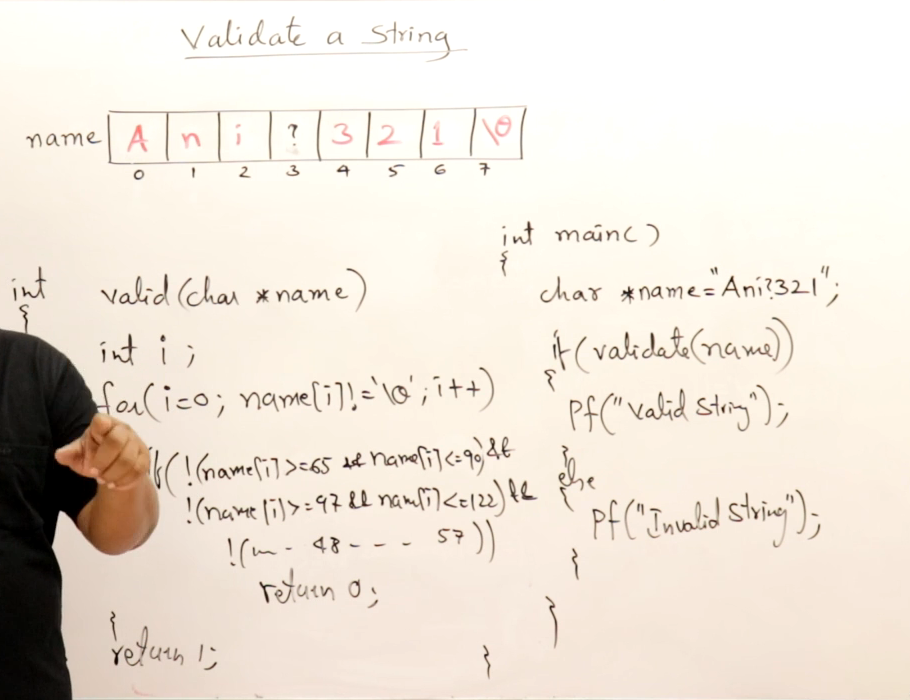 Validate a String
name A n i ? 3 2 1 \0
0 1 2 3 4 5 6 7
int valid(char *name)
{
int i;
for(i=0; name[i]!='\0'; i++)
if(!(name[i]>=65 && name[i]<=90) &&
!(name[i]>=97 && name[i]<=122) &&
!(n - 48 - - - 57))
return 0;
}
return 1;
}
int main()
{
char *name="Ani?321";
if(validate(name))
{
Pf("Valid String");
}
else
{
Pf("Invalid String");
}
}